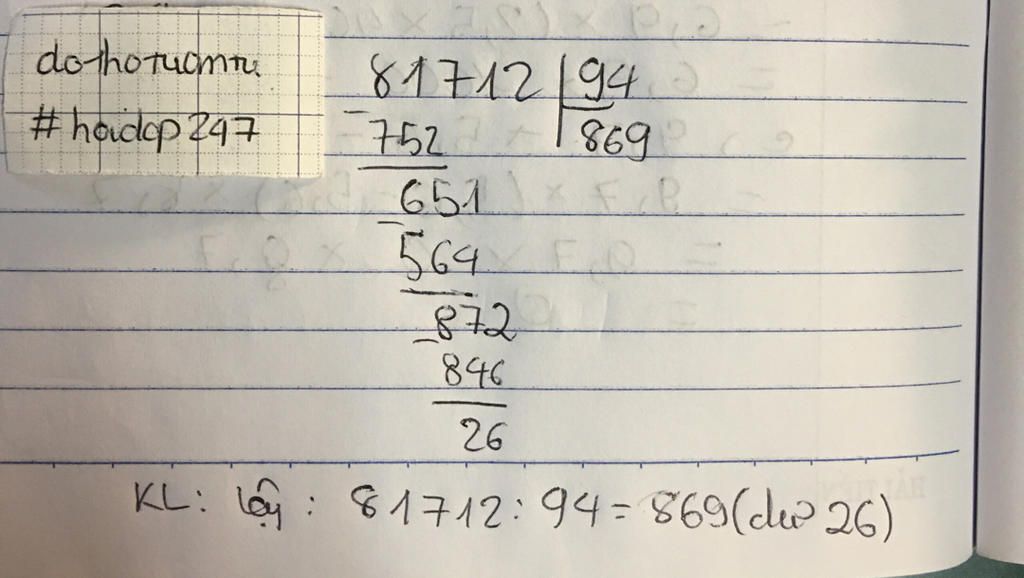 dothotuantu
#hoidap247
81712 | 94
- 752 869
651
- 564
872
- 846
26
KL: Vậy: 81712:94=869(dư 26)